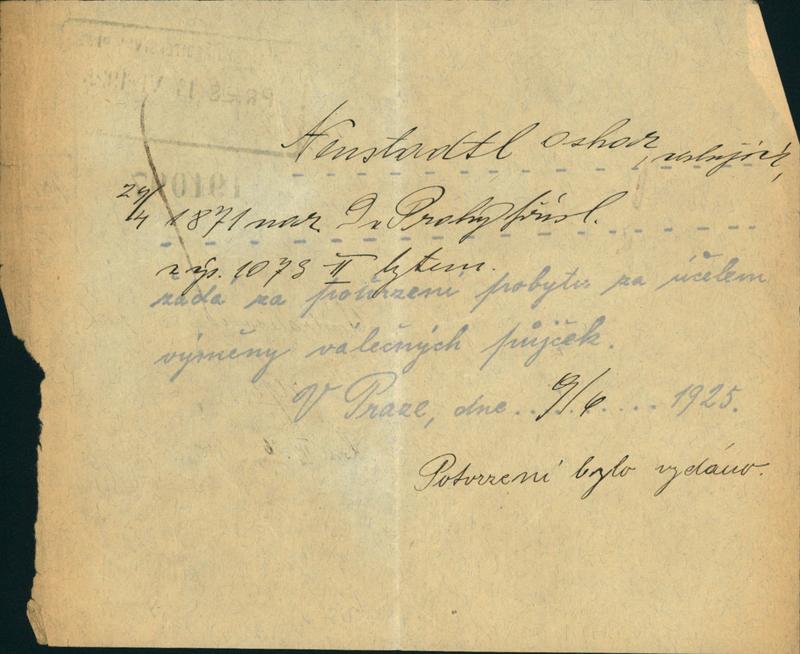 Neustadtl Oskar,
29/4 1871 nar. v Praze přísl.
čp. 1073 II bytem.
žádá za potvrzení pobytu za účelem
výměny válečných půjček.
V Praze, dne 9/6 1925.
Potvrzení bylo vydáno.